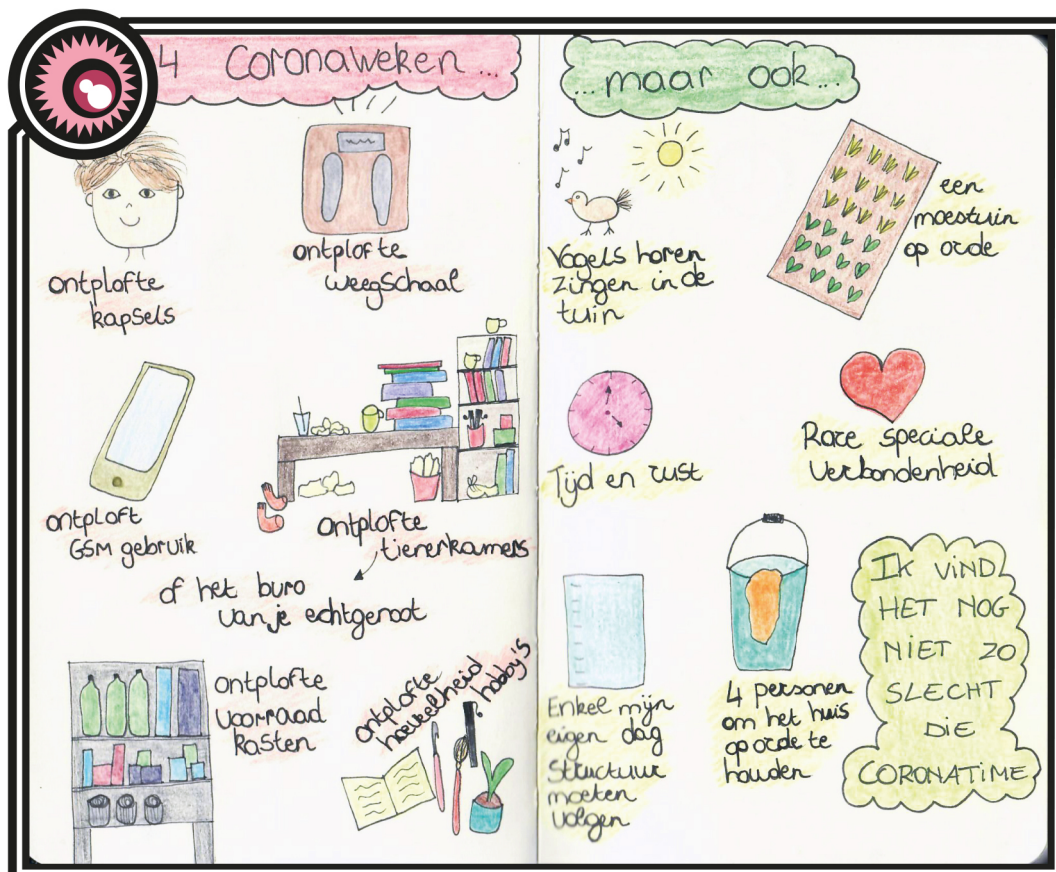 4 Coronaweken...
ontplofte
kapsels
ontplofte
weegschaal
ontploft
GSM gebruik
ontplofte
tienerkamers
of het buro
van je echtgenoot
ontplofte
voorraad
kasten
ontplofte
hoeveelheid
hobby's
...maar ook...
Vogels horen
zingen in de
tuin
een
moestuin
op orde
Tijd en rust
Rare speciale
verbondenheid
Enkel mijn
eigen dag
structuur
moeten
volgen
4 personen
om het huis
op orde te
houden
IK VIND
HET NOG
NIET ZO
SLECHT
DIE
CORONATIME